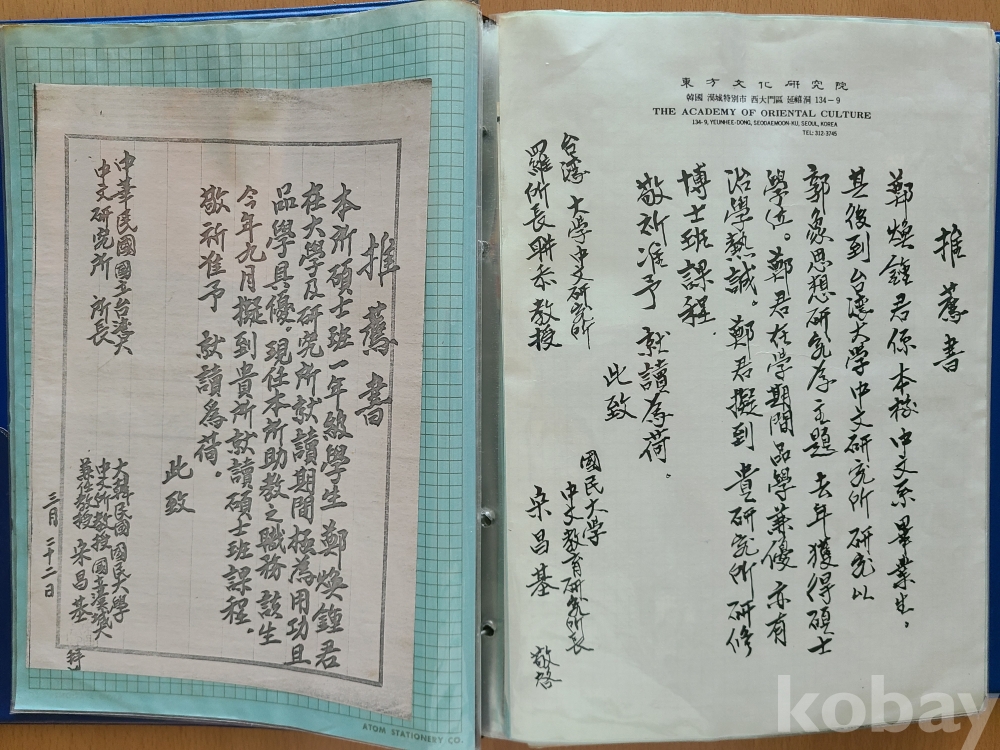 推薦書
本所碩士班一年級學生 鄭煥鍾君
在大學及研究所就讀期間極為用功且
品學具優。現任本所助教之職務該生
今年九月擬到貴所就讀碩士班課程。
敬祈准予 就讀為荷。
此致
中華民國國立台灣大
中文研究所 所長
大韓民國國民大學
中文所教授國立漢城大
兼任教授 宋昌基
三月二十二日
ATOM STATIONERY CO.
東方文化研究院
韓國 漢城特別市 西大門區 延禧洞 134-9
THE ACADEMY OF ORIENTAL CULTURE
134-9, YEUNHEE-DONG, SEODAEMOON-KU, SEOUL, KOREA
TEL: 312-3745
推薦書
鄭煥鍾君係本校中文系畢業生。
其後到台灣大学中文研究所研究以
郭象思想研究為主題 去年獲得碩士
學位。鄭君在学期間品学兼優亦有
治學熱誠。鄭君擬到 貴研究所研修
博士班課程.
敬祈准予 就讀為荷。
此致
台灣大学中文研究所
羅所長聯添教授
國民大学
中文教育研究所長
宋昌基 敬啓
kobay